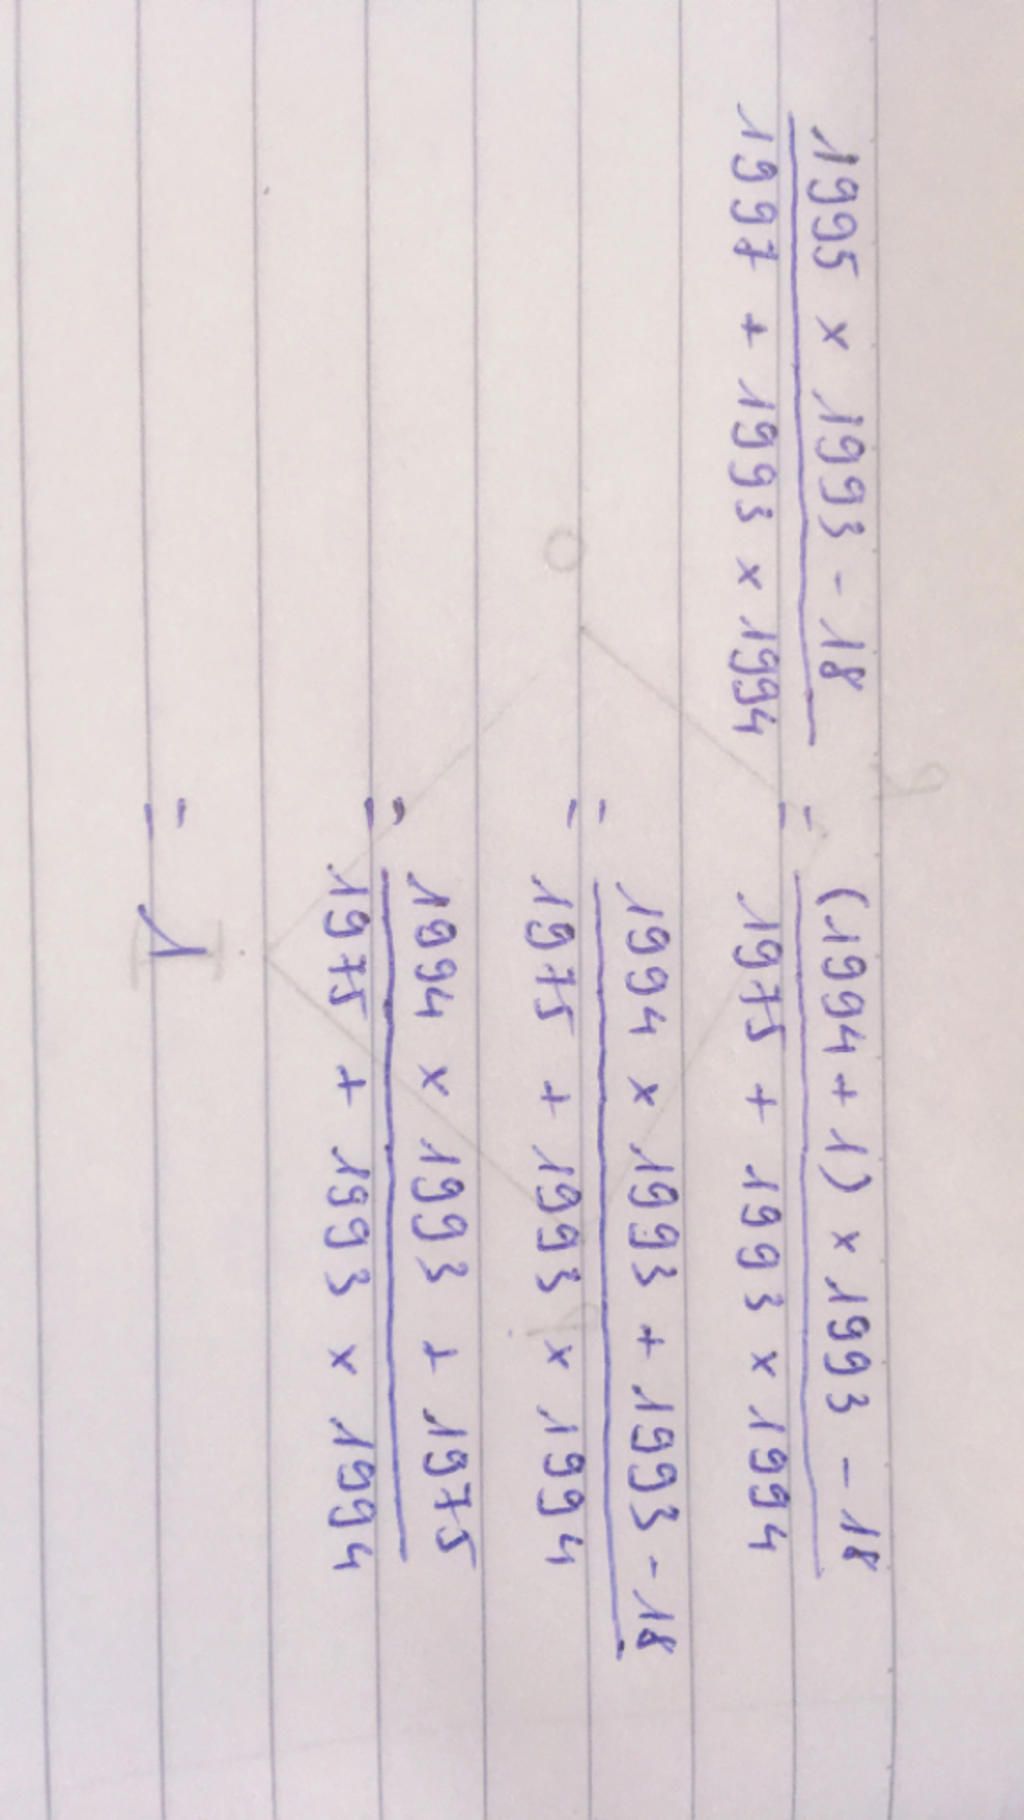 1995 x 1993 - 18
1997 + 1993 x 1994
= (1994 + 1) x 1993 - 18
1975 + 1993 x 1994
= 1994 x 1993 + 1993 - 18
1975 + 1993 x 1994
= 1994 x 1993 + 1975
1975 + 1993 x 1994
= 1